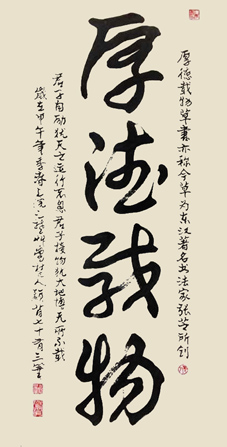 厚德载物草書亦称今草为东汉著名书法家张芝所创
厚德载物
君子自励犹天之运行不息君子接物犹大地博无所不载
歲在甲午年春 七十有三